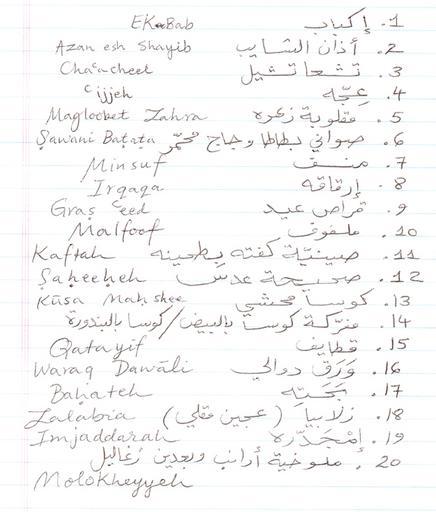 EKaBab 1. إكباب
Azan esh Shayib 2. أذان الشايب
Chaᶜacheel 3. تشعاتشيل
ᶜijjeh 4. عِجّه
Magloobet Zahra 5. مقلوبة زهره
Ṣawani Baṭaṭa 6. صواني بطاطا وجاج محمّر
Minsuf 7. منسف
Irgaga 8. إرقاقه
Graṣ ᶜeed 9. قراص عيد
Malfoof 10. ملفوف
Kaftah 11. صينيّة كفته بطحينه
Ṣaḥeeḥeh 12. صحيحة عدس
Kūsa Maḥshee 13. كوسا محشي
14. متركة كوسا بالبيض/كوسا بالبندورة
Qatayif 15. قطايف
Waraq Dawāli 16. وَرَق دوالي
Baḥateh 17. بَحَته
Zalabia 18. زلابيا (عجين مقلي)
Imjaddarah 19. إمْجَدّره
20. ملوخية أرانب وبعدين زغاليل
Molokheyyeh